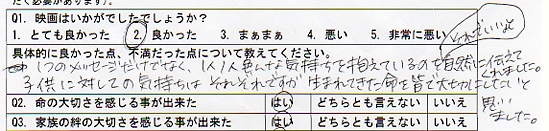 たく必要があります)。
Q1. 映画はいかがでしたでしょうか?
1. とても良かった 2. 良かった 3. まぁまぁ 4. 悪い 5. 非常に悪い
それでいいよ
具体的に良かった点、不満だった点について教えてください。
1つのメッセージだけでなく、1人1人異なる気持ちを抱えているのを自然に伝えてくれました。
子供に対しての気持ちは それぞれですが 生まれてきた命を皆で大切にしたいと思いました。
Q2. 命の大切さを感じる事が出来た はい どちらとも言えない いいえ
Q3. 家族の絆の大切さを感じる事が出来た はい どちらとも言えない いいえ